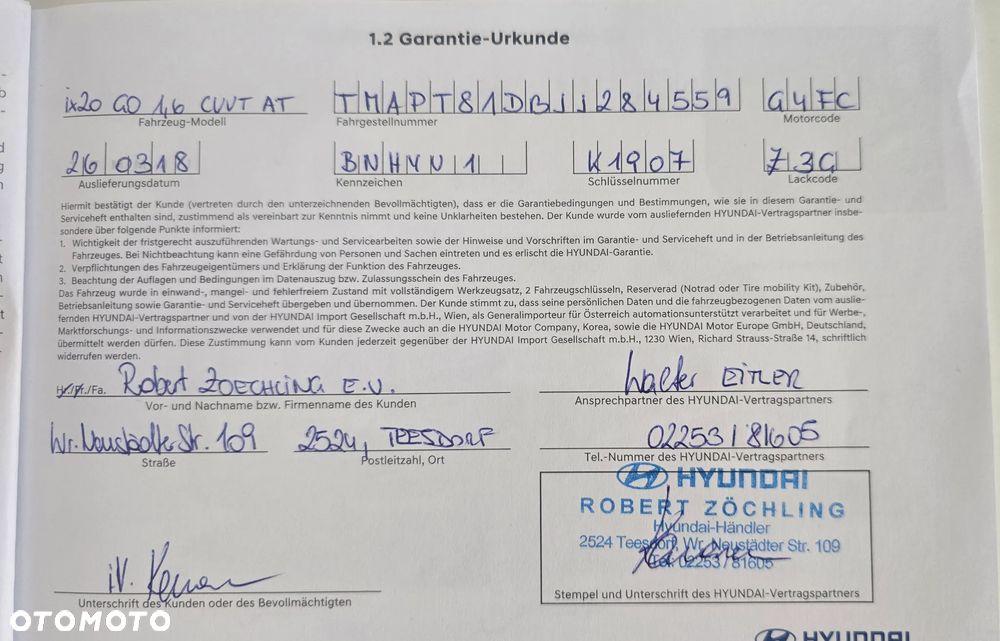 1.2 Garantie-Urkunde
ix20 GO 1,6 CVVT AT TMAPT81DBJJ284559 G4FC
Fahrzeug-Modell Fahrgestellnummer Motorcode
26 03 18 BNHVN1 K1907 Z3G
Auslieferungsdatum Kennzeichen Schlüsselnummer Lackcode
Hiermit bestätigt der Kunde (vertreten durch den unterzeichnenden Bevollmächtigten), dass er die Garantiebedingungen und Bestimmungen, wie sie in diesem Garantie- und
Serviceheft enthalten sind, zustimmend als vereinbart zur Kenntnis nimmt und keine Unklarheiten bestehen. Der Kunde wurde vom ausliefernden HYUNDAI-Vertragspartner insbe-
sondere über folgende Punkte informiert:
1. Wichtigkeit der fristgerecht auszuführenden Wartungs- und Servicearbeiten sowie der Hinweise und Vorschriften im Garantie- und Serviceheft und in der Betriebsanleitung des
Fahrzeuges. Bei Nichtbeachtung kann eine Gefährdung von Personen und Sachen eintreten und es erlischt die HYUNDAI-Garantie.
2. Verpflichtungen des Fahrzeugeigentümers und Erklärung der Funktion des Fahrzeuges.
3. Beachtung der Auflagen und Bedingungen im Datenauszug bzw. Zulassungsschein des Fahrzeuges.
Das Fahrzeug wurde in einwand-, mangel- und fehlerfreiem Zustand mit vollständigem Werkzeugsatz, 2 Fahrzeugschlüsseln, Reserverad (Notrad oder Tire mobility Kit), Zubehör,
Betriebsanleitung sowie Garantie- und Serviceheft übergeben und übernommen. Der Kunde stimmt zu, dass seine persönlichen Daten und die fahrzeugbezogenen Daten vom auslie-
fernden HYUNDAI-Vertragspartner und von der HYUNDAI Import Gesellschaft m.b.H., Wien, als Generalimporteur für Österreich automationsunterstützt verarbeitet und für Werbe-,
Marktforschungs- und Informationszwecke verwendet und für diese Zwecke auch an die HYUNDAI Motor Company, Korea, sowie die HYUNDAI Motor Europe GmbH, Deutschland,
übermittelt werden dürfen. Diese Zustimmung kann vom Kunden jederzeit gegenüber der HYUNDAI Import Gesellschaft m.b.H., 1230 Wien, Richard Strauss-Straße 14, schriftlich
widerrufen werden.
Hr./Fr./Fa. Robert ZOECHLING E.U. Walter EITLER
Vor- und Nachname bzw. Firmenname des Kunden Ansprechpartner des HYUNDAI-Vertragspartners
Wr. Neustädter Str. 109 2524, TEESDORF 02253 / 81605
Straße Postleitzahl, Ort Tel.-Nummer des HYUNDAI-Vertragspartners
HYUNDAI
ROBERT ZÖCHLING
Hyundai-Händler
2524 Teesdorf, Wr. Neustädter Str. 109
Tel. 02253 / 81605
iV.
Unterschrift des Kunden oder des Bevollmächtigten Stempel und Unterschrift des HYUNDAI-Vertragspartners
OTOMOTO
HYUNDAI